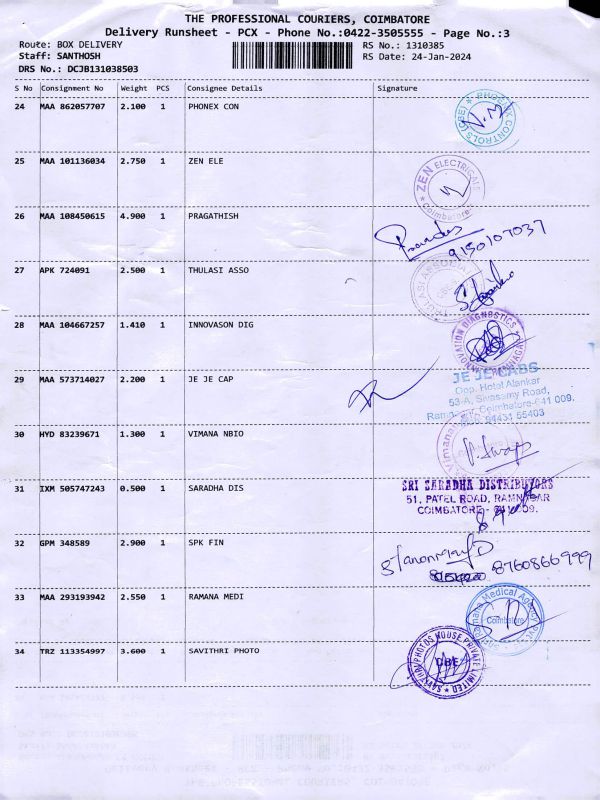 THE PROFESSIONAL COURIERS, COIMBATORE
Delivery Runsheet - PCX - Phone No.:0422-3505555 - Page No.:3
Route: BOX DELIVERY RS No.: 1310385
Staff: SANTHOSH RS Date: 24-Jan-2024
DRS No.: DCJB131038503
S No Consignment No Weight PCS Consignee Details Signature
24 MAA 862057707 2.100 1 PHONEX CON
PHOENIX CONTROLS (CBE)
25 MAA 101136034 2.750 1 ZEN ELE
ZEN ELECTRICALS
Coimbatore
26 MAA 108450615 4.900 1 PRAGATHISH
9150107037
27 APK 724091 2.500 1 THULASI ASSO
28 MAA 104667257 1.410 1 INNOVASON DIG
DIAGNOSTICS
29 MAA 573714027 2.200 1 JE JE CAP
JE JE CABS
Opp. Hotel Alankar
53-A, Sivasamy Road,
Coimbatore-641 009.
94431 55403
30 HYD 83239671 1.300 1 VIMANA NBIO
Vimana
31 IXM 505747243 0.500 1 SARADHA DIS
SRI SARADHA DISTRIBUTORS
51, PATEL ROAD, RAMNAGAR
COIMBATORE - 641 009.
32 GPM 348589 2.900 1 SPK FIN
8760866999
33 MAA 293193942 2.550 1 RAMANA MEDI
Ramana Medical Agency Pvt.
Coimbatore
34 TRZ 113354997 3.600 1 SAVITHRI PHOTO
SAVITHRI PHOTOS HOUSE PRIVATE LIMITED
CBE